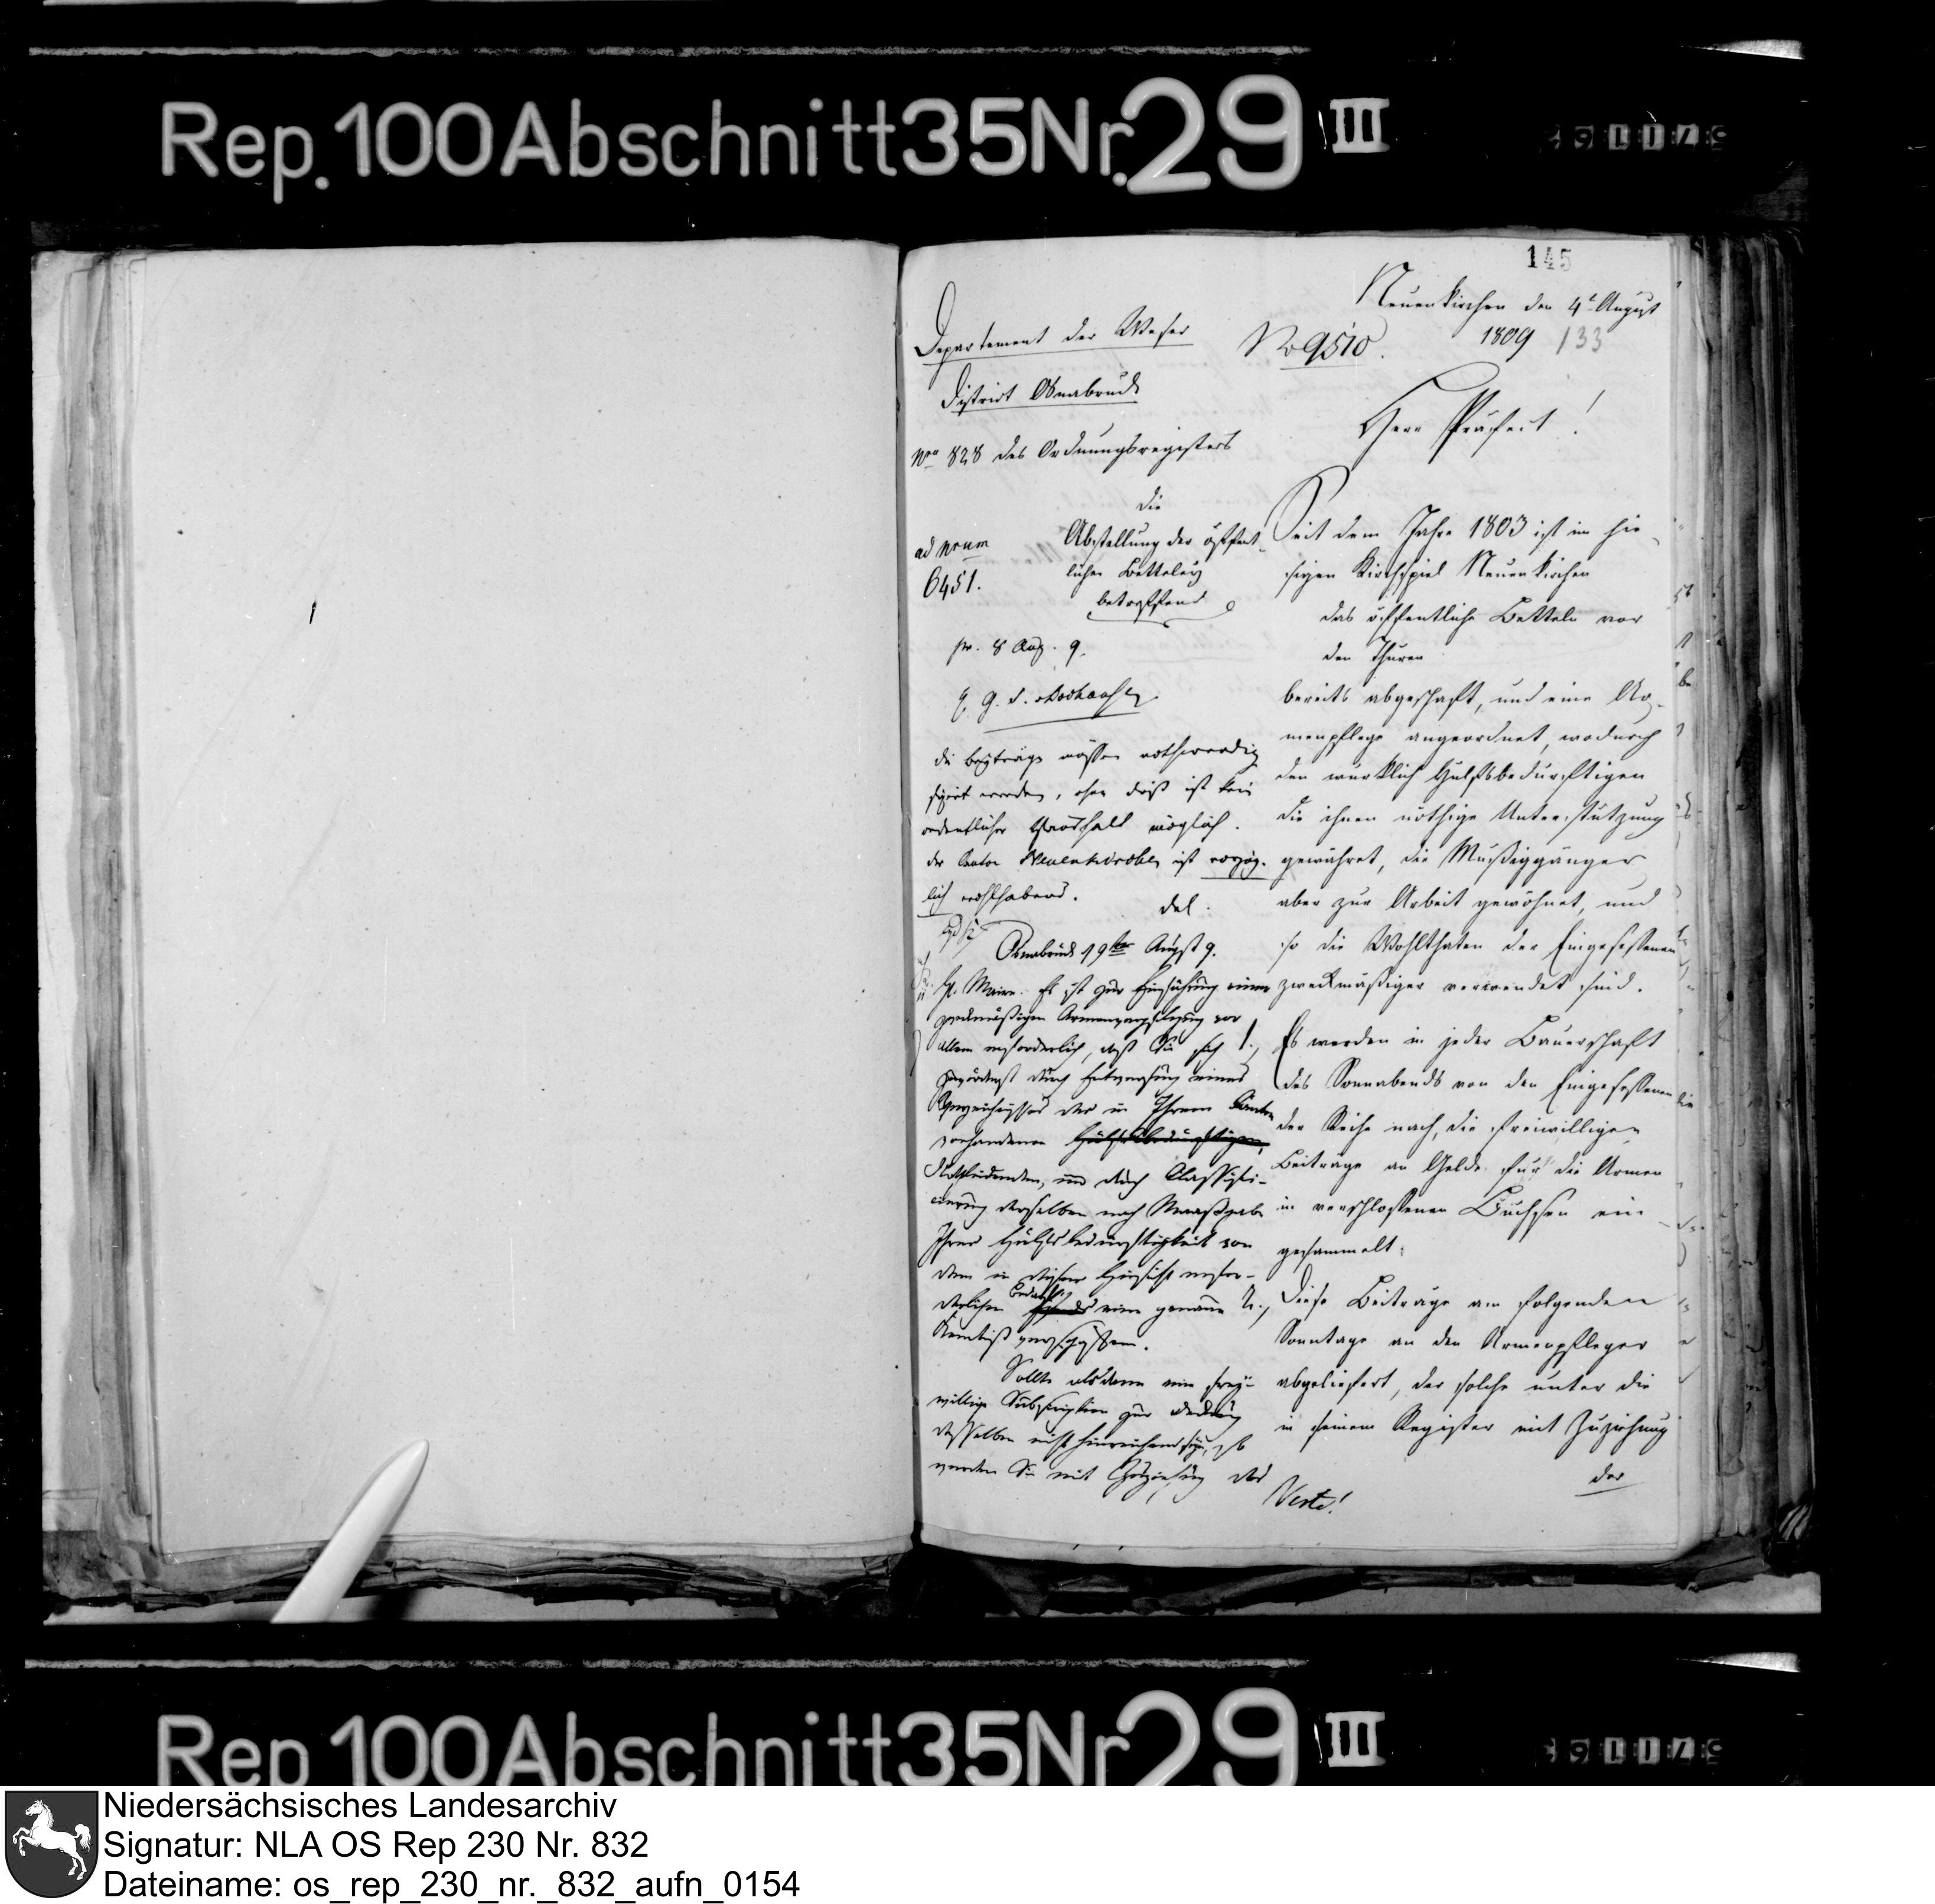 Rep. 100 Abschnitt 35 Nr. 29 III
145
Neuenkirchen den 4t August
1809 133
Departement der Weser
No 9510.
District Osnabrück
Nro 828 des Ordnungsregisters
Herr Präfect!
ad Nrum
6451.
Die
Abstellung der öffent-
lichen Betteley
betreffend
pr. 8 Aug. 9.
die beyträge müssen nothwendig
fixirt werden, ohne dieß ist kein
ordentlicher Haushalt möglich.
der Canton Neuenkirchen ist vorzüg-
lich wohlhabend.
del.
Osnabrück 19ten August 9.
H. Maire. Es ist zur Einführung einer
zweckmäßigen Armenverpflegung vor
allem erforderlich, daß Sie sich 1.,
zuvörderst durch Entwerfung eines
Verzeichnisses der in Ihrem Canton
vorhandenen Hülfsbedürftigen,
Nothleidenden, und durch Classifi-
cirung derselben nach Maaßgabe
Ihrer Hülfsbedürftigkeit von
dem in dieser Hinsicht erfor-
derlichen Bedarf eine genaue
Kenntniß verschaffen.
Sollte alsdann eine frey-
willige Subscription zur Deckung
desselben nicht hinreichend seyn, so
werden Sie mit Zuziehung des
Seit dem Jahre 1803 ist im hie-
sigen Kirchspiel Neuenkirchen
das öffentliche Betteln vor
den Thüren
bereits abgeschaft, und eine Ar-
menpflege angeordnet, wodurch
den würklich Hülfsbedürftigen
die ihnen nöthige Unterstützung
gewähret, die Müßiggänger
aber zur Arbeit gewöhnet, und
so die Wohlthaten der Eingesessenen
zweckmäßiger verwendet sind.
Es werden in jeder Bauerschaft
des Sonnabends von den Eingesessenen
der Reihe nach, die freiwilligen
Beiträge an Gelde für die Armen
in verschlossenen Büchsen ein-
gesammelt;
Diese Beiträge am folgenden
Sonntage an den Armenpfleger
abgeliefert, der solche unter die
in seinem Register mit Zuziehung
der
Verte!
Rep 100 Abschnitt 35 Nr 29 III
Niedersächsisches Landesarchiv
Signatur: NLA OS Rep 230 Nr. 832
Dateiname: os_rep_230_nr._832_aufn_0154